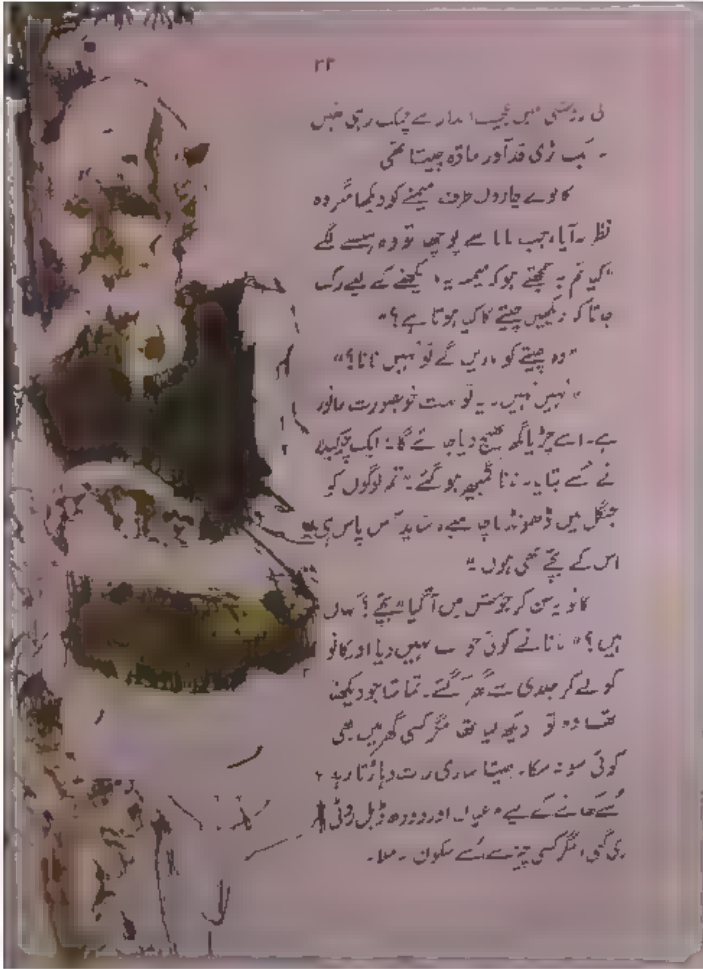 ۲۳
کی روشنی میں عجیب انداز سے چمک رہی تھیں
۔ بڑی قدآور مادہ چیتا تھی
کانو نے چاروں طرف میمنے کو دیکھا مگر وہ
نظر نہ آیا، جب نانا سے پوچھا تو وہ ہنسنے لگے
"کیا تم یہ سمجھتے ہو کہ میمنہ یہ دیکھنے کے لیے رک
جاتا کہ دیکھیں چیتے کا کیا ہوتا ہے؟"
"وہ چیتے کو ماریں گے تو نہیں نانا؟"
"نہیں نہیں۔ یہ تو بہت خوبصورت جانور
ہے۔ اسے چڑیا گھر بھیج دیا جائے گا؛ ایک
نے اُسے بتایا۔ نانا گمبھیر ہو گئے۔ "تم لوگوں کو
جنگل میں ڈھونڈنا چاہیے، شاید آس پاس ہی
اس کے بچے بھی ہوں"
کانو یہ سن کر جوش میں آگیا "بچے؟ کہاں
ہیں؟" نانا نے کوئی جواب نہیں دیا اور کانو
کو لے کر جلدی سے گھر آگئے۔ تماشا جو دیکھنا
تھا وہ تو دیکھ لیا تھا مگر کسی گھر میں بھی
کوئی سو نہ سکا۔ چیتا ساری رات دہاڑتا رہا،
اُسے کھانے کے لیے اور دودھ ڈبل روٹی
دی گئی، مگر کسی چیز سے اُسے سکون نہ ملا۔